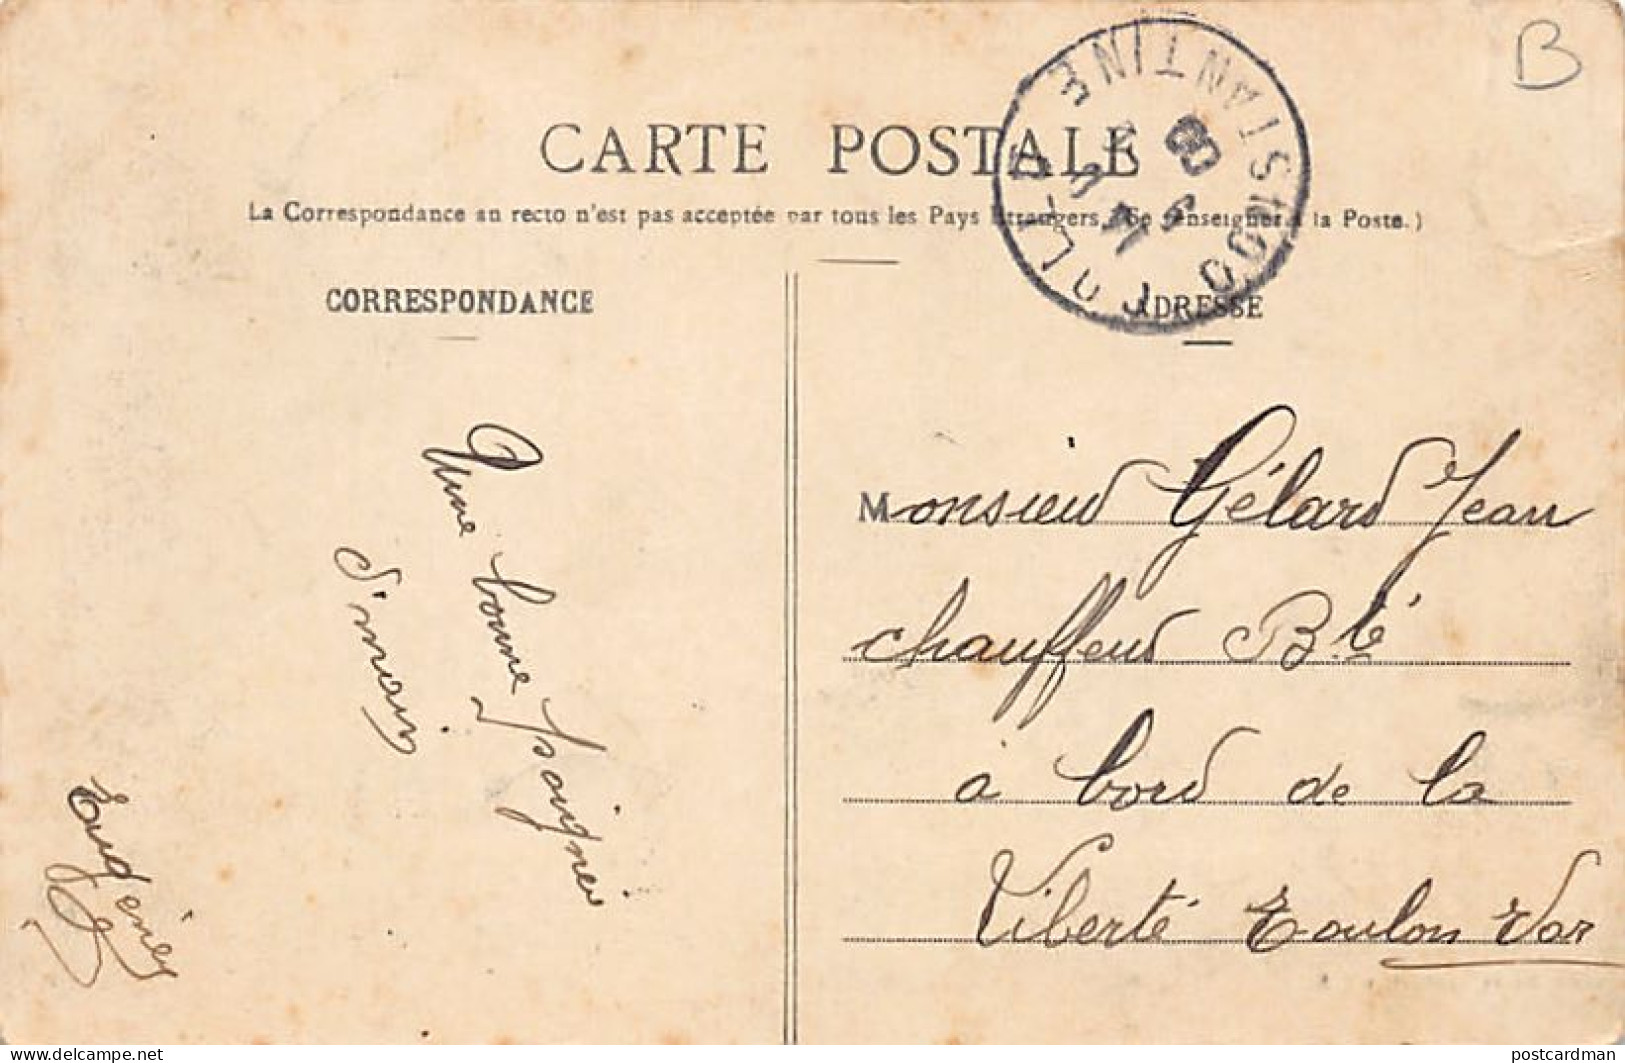 B
CARTE POSTALE
La Correspondance au recto n'est pas acceptée par tous les Pays Etrangers. (Se renseigner à la Poste.)
CONSTANTINE
08
CORRESPONDANCE
ADRESSE
Une bonne poignée
d'main
Eugène
Monsieur Gélard Jean
chauffeur Bté
à bord de la
Liberté Toulon Var
postcardman